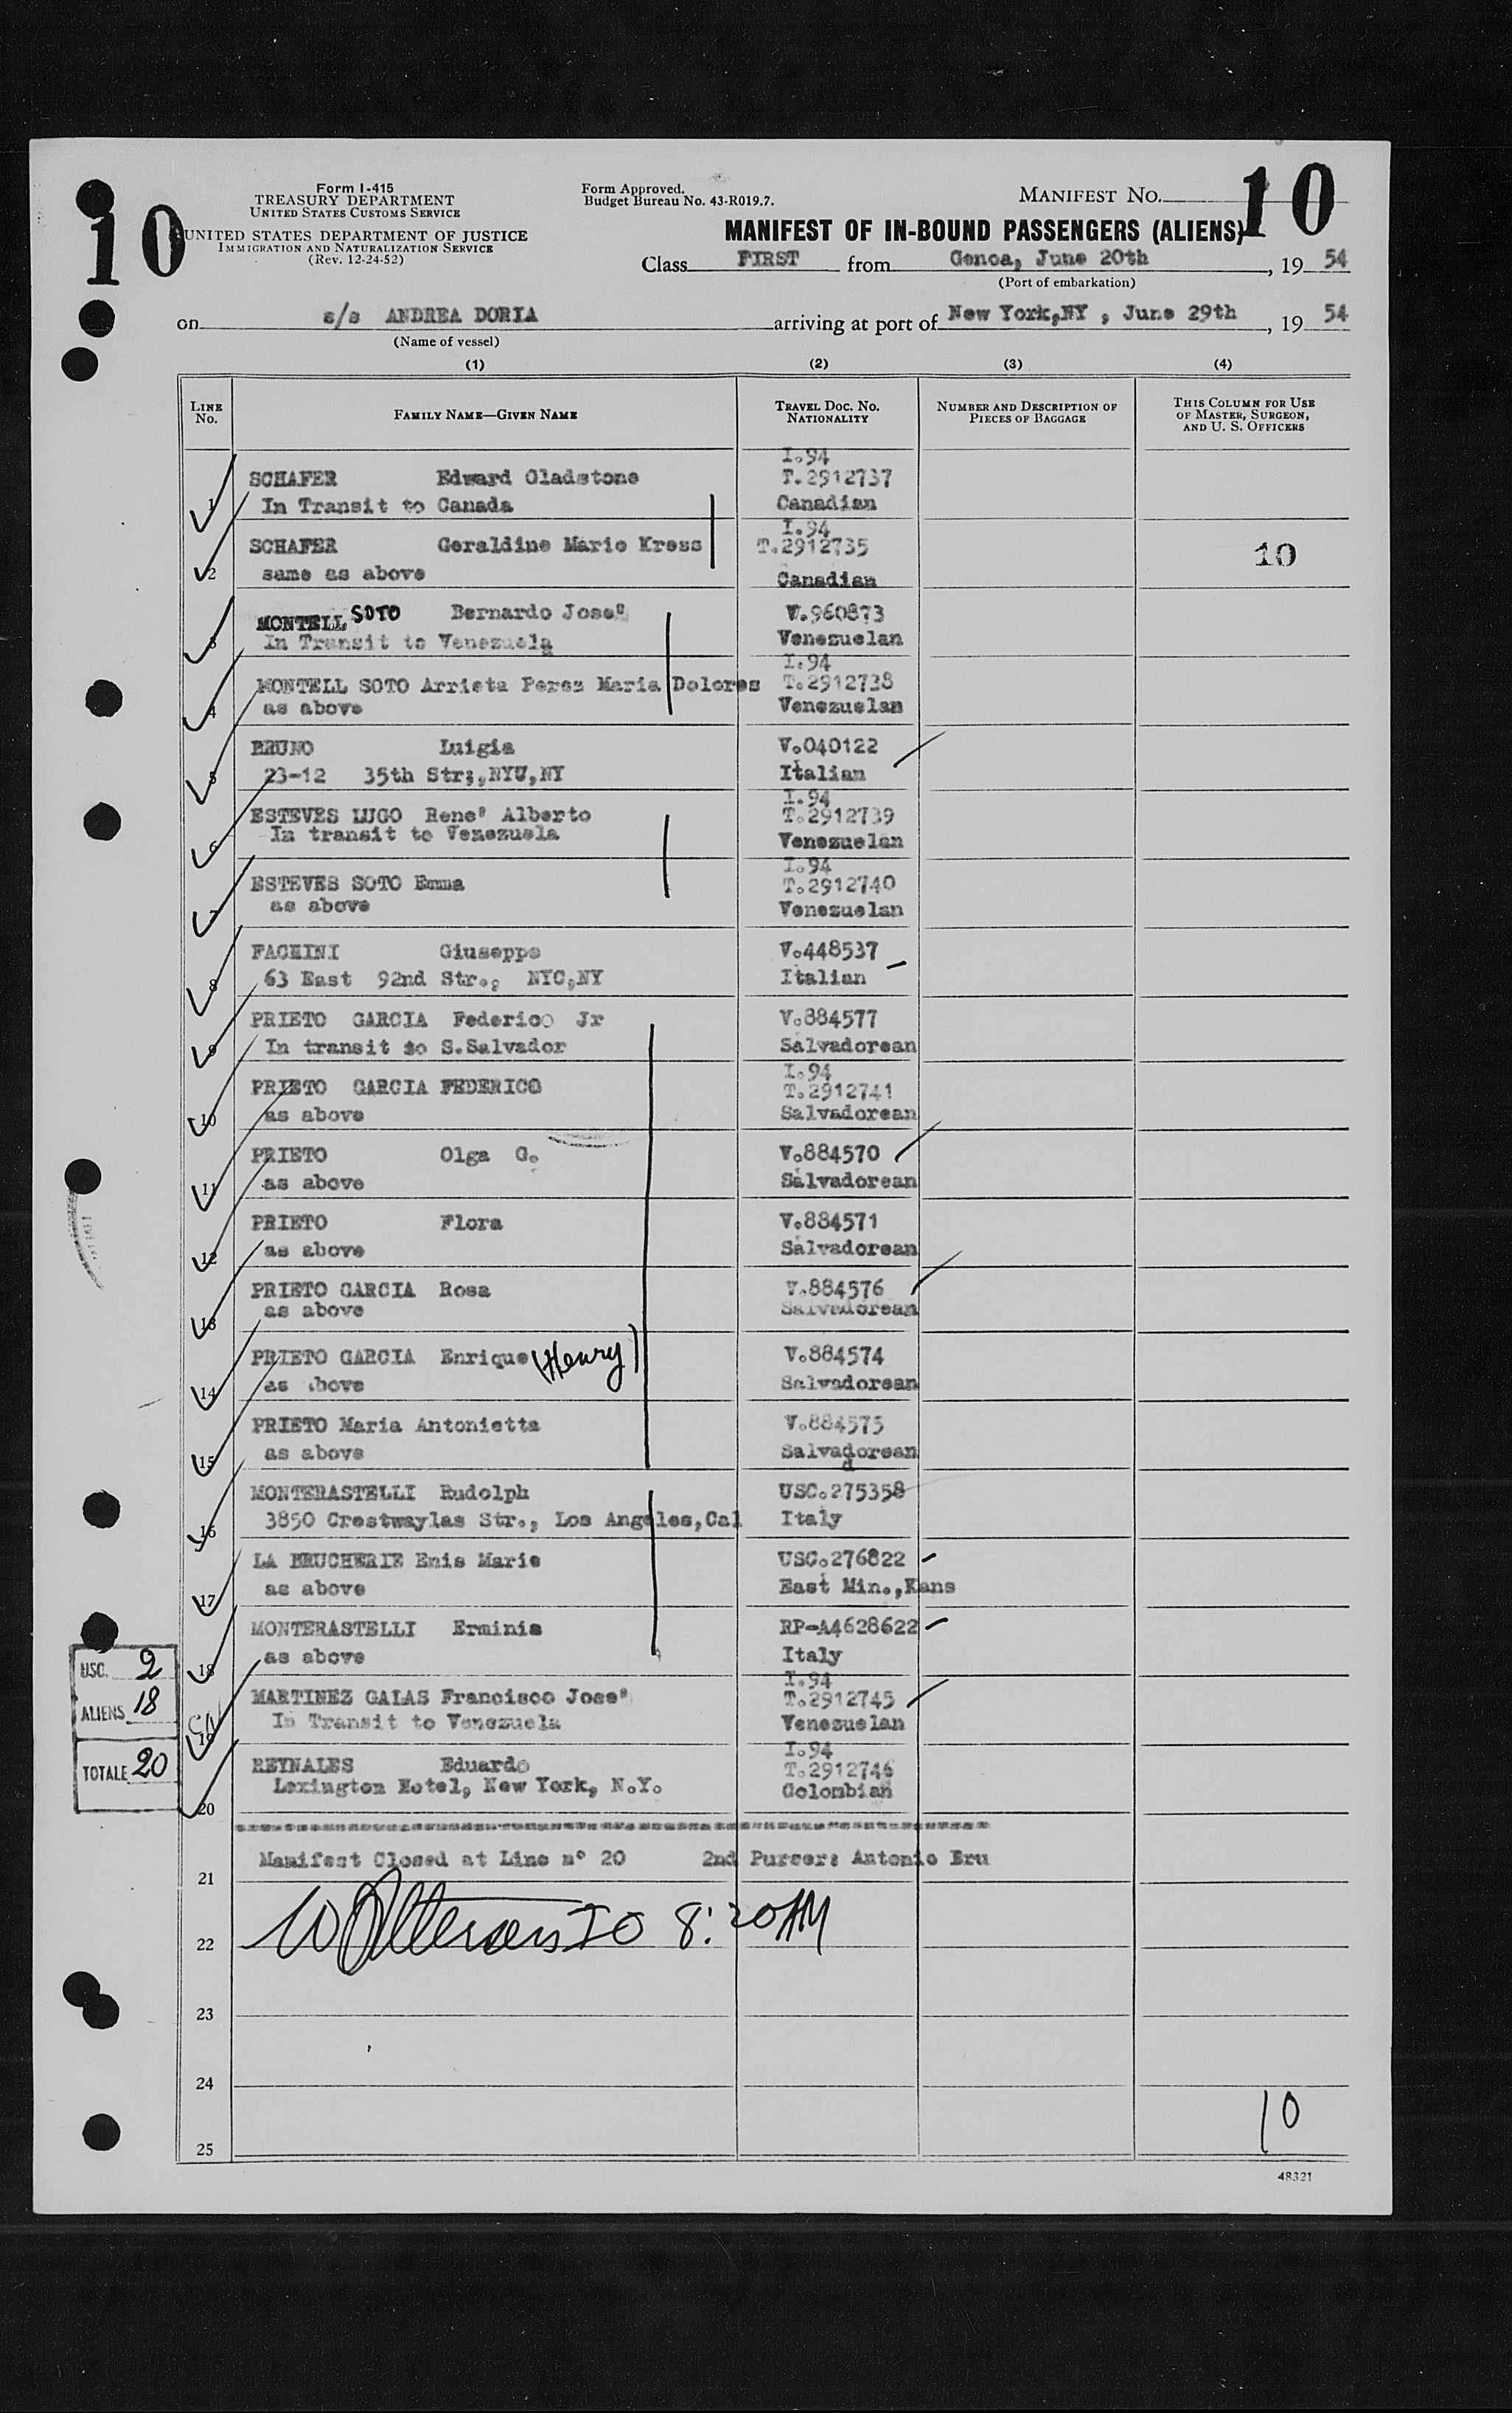 10
Form I-415
TREASURY DEPARTMENT
UNITED STATES CUSTOMS SERVICE
UNITED STATES DEPARTMENT OF JUSTICE
IMMIGRATION AND NATURALIZATION SERVICE
(Rev. 12-24-52)
Form Approved.
Budget Bureau No. 43-R019.7.
MANIFEST NO. 10
MANIFEST OF IN-BOUND PASSENGERS (ALIENS)
Class FIRST from Genoa, June 20th, 19 54
(Port of embarkation)
on s/s ANDREA DORIA arriving at port of New York,NY , June 29th, 19 54
(Name of vessel)
(1) (2) (3) (4)
LINE No. FAMILY NAME—GIVEN NAME TRAVEL DOC. NO. NATIONALITY NUMBER AND DESCRIPTION OF PIECES OF BAGGAGE THIS COLUMN FOR USE OF MASTER, SURGEON, AND U. S. OFFICERS
I.94
SCHAFER Edward Gladstone T.2912737
1 In Transit to Canada Canadian
I.94
SCHAFER Geraldine Marie Kress T.2912735 10
2 same as above Canadian
MONTELL SOTO Bernardo Jose" V.960873
3 In Transit to Venezuela Venezuelan
I.94
MONTELL SOTO Arrieta Perez Maria Dolores T.2912738
4 as above Venezuelan
BRUNO Luigia V.040122
5 23-12 35th Str;,NYU,NY Italian
I.94
ESTEVES LUGO Rene" Alberto T.2912739
6 In transit to Venezuela Venezuelan
I.94
ESTEVES SOTO Emma T.2912740
7 as above Venezuelan
FACHINI Giuseppe V.448537
8 63 East 92nd Str., NYC,NY Italian
PRIETO GARCIA Federico Jr V.884577
9 In transit to S.Salvador Salvadorean
I.94
PRIETO GARCIA FEDERICO T.2912741
10 as above Salvadorean
PRIETO Olga G. V.884570
11 as above Salvadorean
PRIETO Flora V.884571
12 as above Salvadorean
PRIETO GARCIA Rosa V.884576
13 as above Salvadorean
PRIETO GARCIA Enrique (Henry) V.884574
14 as above Salvadorean
PRIETO Maria Antonietta V.884575
15 as above Salvadorean
d
MONTERASTELLI Rudolph USC.275358
16 3850 Crestwaylas Str., Los Angeles,Cal Italy
LA BRUCHERIE Enis Marie USC.276822
17 as above East Min.,Kans
MONTERASTELLI Erminia RP-A4628622
18 as above Italy
I.94
MARTINEZ GALAS Francisco Jose" T.2912745
19 In Transit to Venezuela Venezuelan
I.94
REYNALES Eduardo T.2912746
Lexington Hotel, New York, N.Y. Colombian
20
USC. 2
ALIENS 18
TOTALE 20
Manifest Closed at Line n° 20 2nd Purser: Antonio Bru
21
22 8:20AM
23
24
25 10
48321